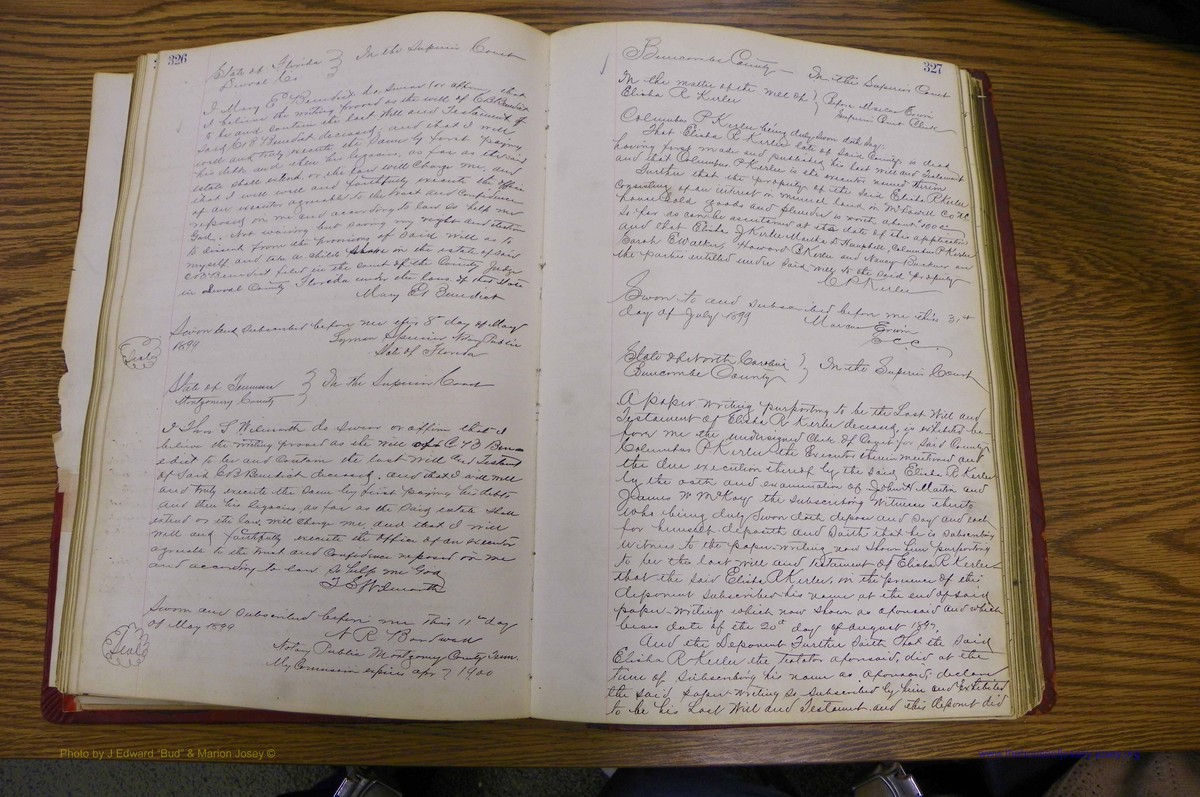 326
State of Florida } In the Superior Court
Duval Co
I Mary E Benedict do swear (or affirm) that
I believe the writing proved as the will of C B Benedict
to be and contain the last Will and Testament of
said C B Benedict deceased, and that I will
well and truly execute the same by first paying
his debts and then his legacies, as far as the said
estate shall extend or the law will charge me, and
that I will well and faithfully execute the office
of an executor agreeable to the trust and confidence
reposed in me and according to law So help me
God. Not waiving but saving my right and election
to dissent from the provisions of said will as to
myself, and take a childs share in the estate of said
C B Benedict filed in the court of the County Judge
in Duval County Florida under the laws of this State
Mary E Benedict
Sworn and subscribed before me this 8 day of May
1899
Notary Public
State of Florida
Seal
State of Tennessee } In the Superior Court
Montgomery County
I Thos S Wilmouth do swear or affirm that I
believe the writing proved as the will of C B Bene
dict to be and contain the last Will and Testament
of said C B Benedict deceased, and that I will well
and truly execute the same by first paying his debts
and then his legacies, as far as the said estate shall
extend or the law will charge me and that I will
well and faithfully execute the office of an executor
agreeable to the trust and confidence reposed in me
and according to law So help me God
Sworn and subscribed before me this 11th day
of May 1899
N R
Notary Public Montgomery County Tenn.
My Commission expires apr 7 1900
Seal
327
Buncombe County — In the Superior Court
In the matter of the will of } Before Marcus Erwin
Elisha R Kerlee } Superior Court Clerk
Columbus P Kerlee being duly sworn doth say:
That Elisha R Kerlee late of said County, is dead
having first made and published his last Will and Testament
and that Columbus P Kerlee is the executor named therein
Further that the property of the said Elisha R Kerlee
consisting of an interest in mineral land in McDowell Co NC
household goods and plunder is worth about 100
so far as can be ascertained at the date of this application
and that Elisha J Kerlee Martha D Hemphill, Columbus P Kerlee
Sarah E Walker, Howard B Kerlee and Nancy Burgin are
the parties entitled under said will to the said property
C P Kerlee
Sworn to and subscribed before me this 31st
day of July 1899
Marcus Erwin
S.C.C.
State of North Carolina } In the Superior Court
Buncombe County
A paper writing purporting to be the Last Will and
Testament of Elisha R Kerlee deceased, is exhibited be
fore me the undersigned Clerk of Court for said County
Columbus P Kerlee the Executor therein mentioned and
the due execution thereof by the said Elisha R Kerlee
by the oath and examination of John H Martin and
James W McKoy the subscribing witnesses thereto
who being duly sworn doth depose and say and each
for himself deposeth and saith that he is subscribing
witness to the paper-writing now shown him purporting
to be the last will and testament of Elisha R Kerlee
that the said Elisha R Kerlee, in the presence of this
deponent subscribed his name at the end of said
paper-writing which now shown as aforesaid and which
bears date of the 20th day of August 1897,
And the Deponent Further Saith That the said
Elisha R Kerlee the testator aforesaid, did at the
time of subscribing his name as aforesaid, declare
the said paper-writing so subscribed by him and exhibited
to be his Last Will and Testament and this deponent did
Photo by J Edward "Bud" & Marion Josey ©